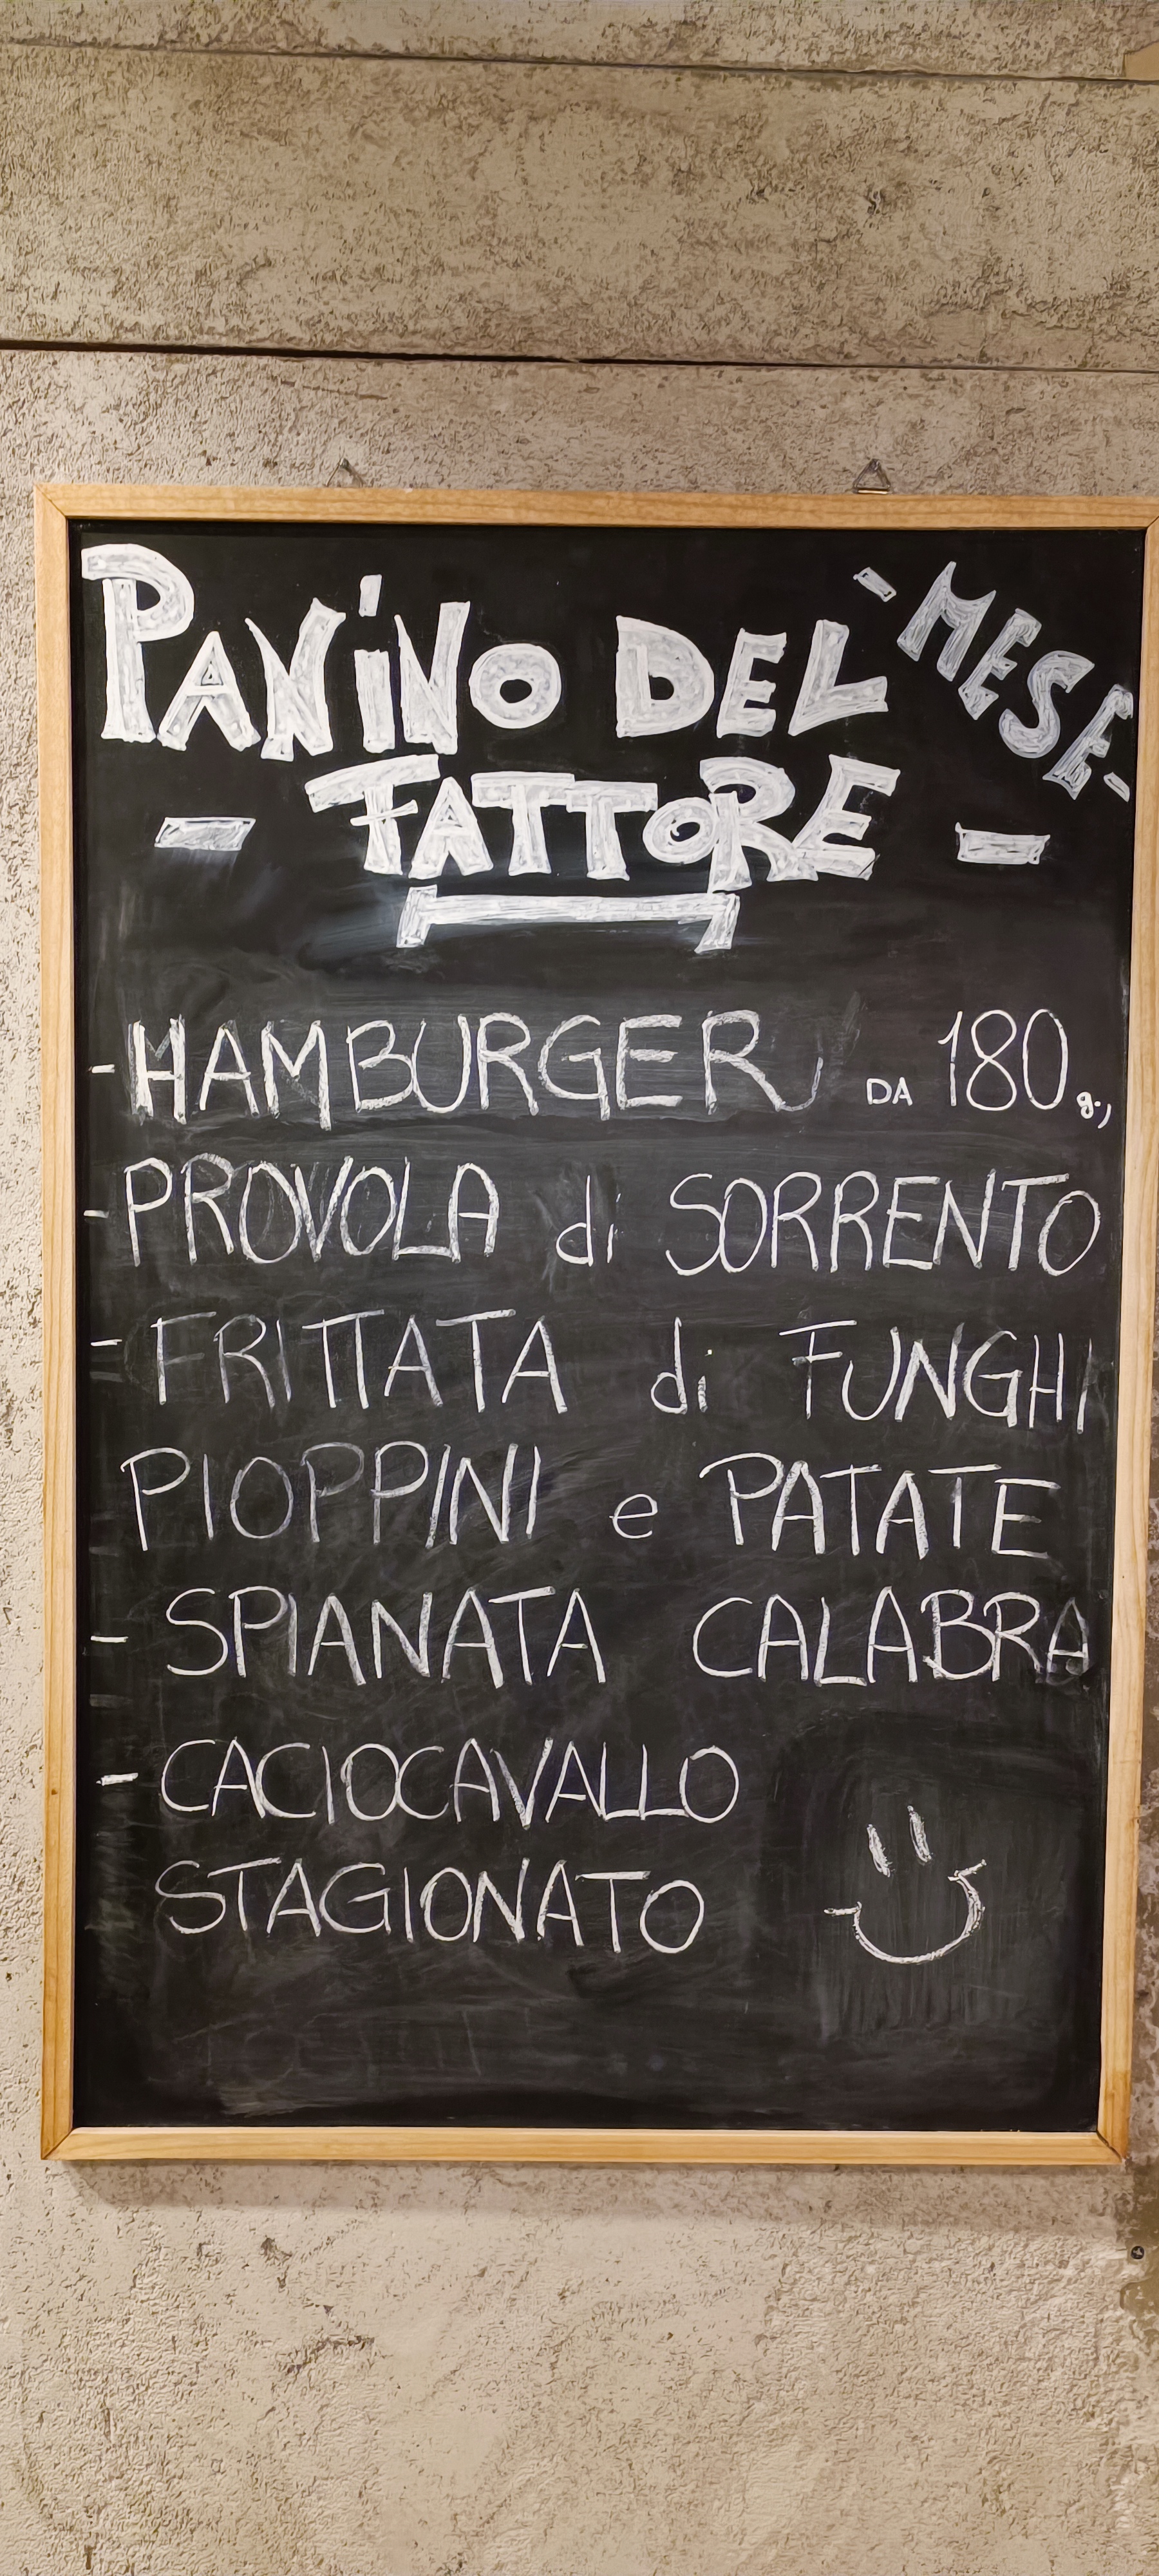 PANiNO DEL -MESE-
- FATTORE -
- HAMBURGER DA 180 g.,
- PROVOLA di SORRENTO
- FRITTATA di FUNGHI
PIOPPINI e PATATE
- SPIANATA CALABRA
- CACIOCAVALLO
STAGIONATO